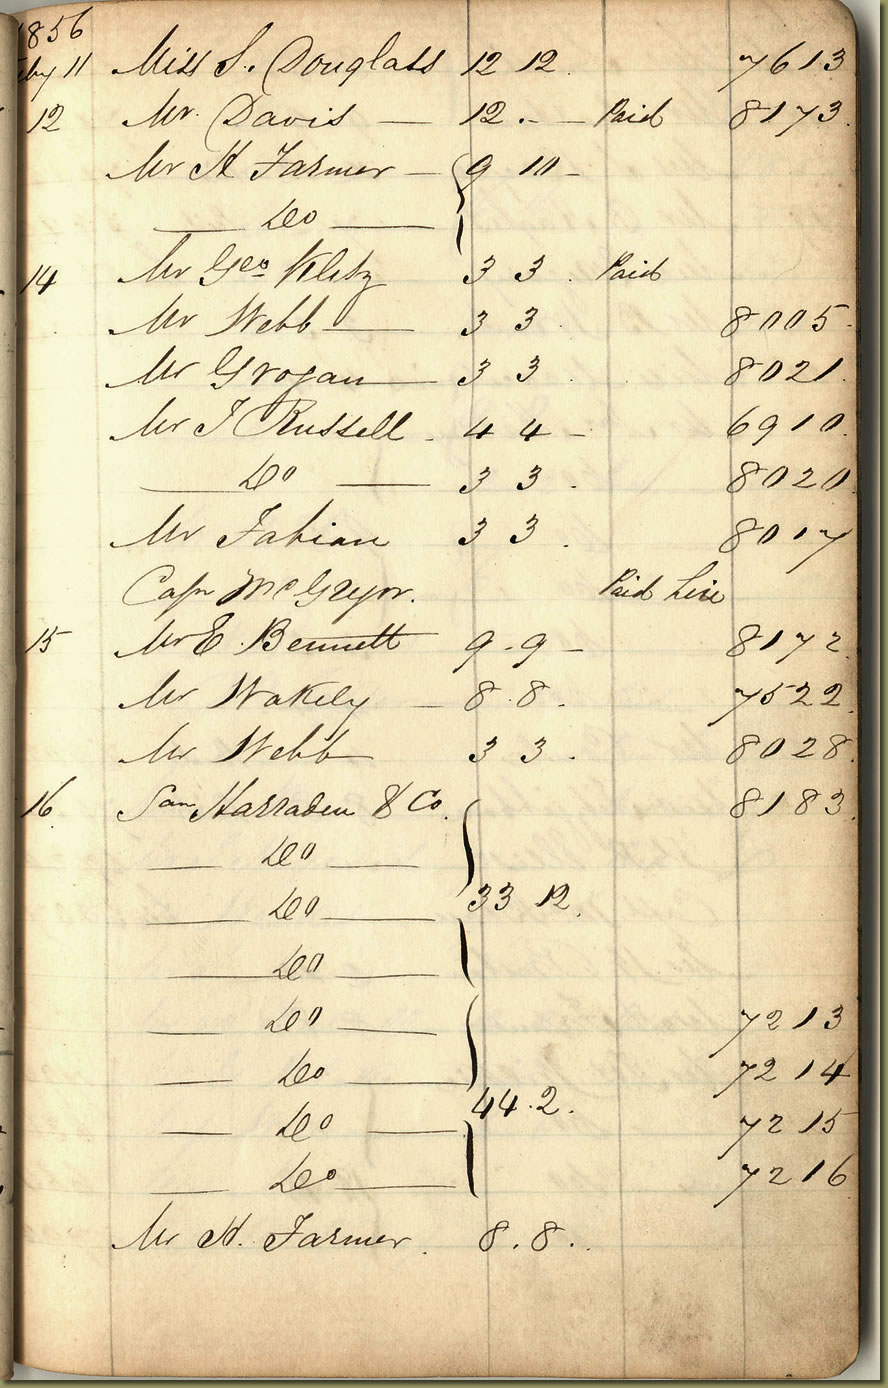 1856
Feby 11 Miss S. Douglass 12 12. 7613
12 Mr. Davis — 12. - - Paid 8173.
Mr H Farmer - 9 10 -
— Do —
14 Mr Geo Kletz 3 3 . Paid
Mr Webb — 3 3 . 8005.
Mr Grogan — 3 3 . 8021.
Mr J Russell . 4 4 - 6910.
— Do — 3 3 . 8020.
Mr Fabian 3 3 . 8017
Capn McGregor. Paid
15 Mr E. Bennett 9.9 - 8172.
Mr Wakely - 8.8. 7522.
Mr Webb — 3 3 . 8028.
16 Harraden & Co. 8183.
— Do —
— Do — 33 12.
— Do —
— Do — 7213
— Do — 7214
— Do — 44.2. 7215
— Do — 7216
Mr H. Farmer. 8.8.